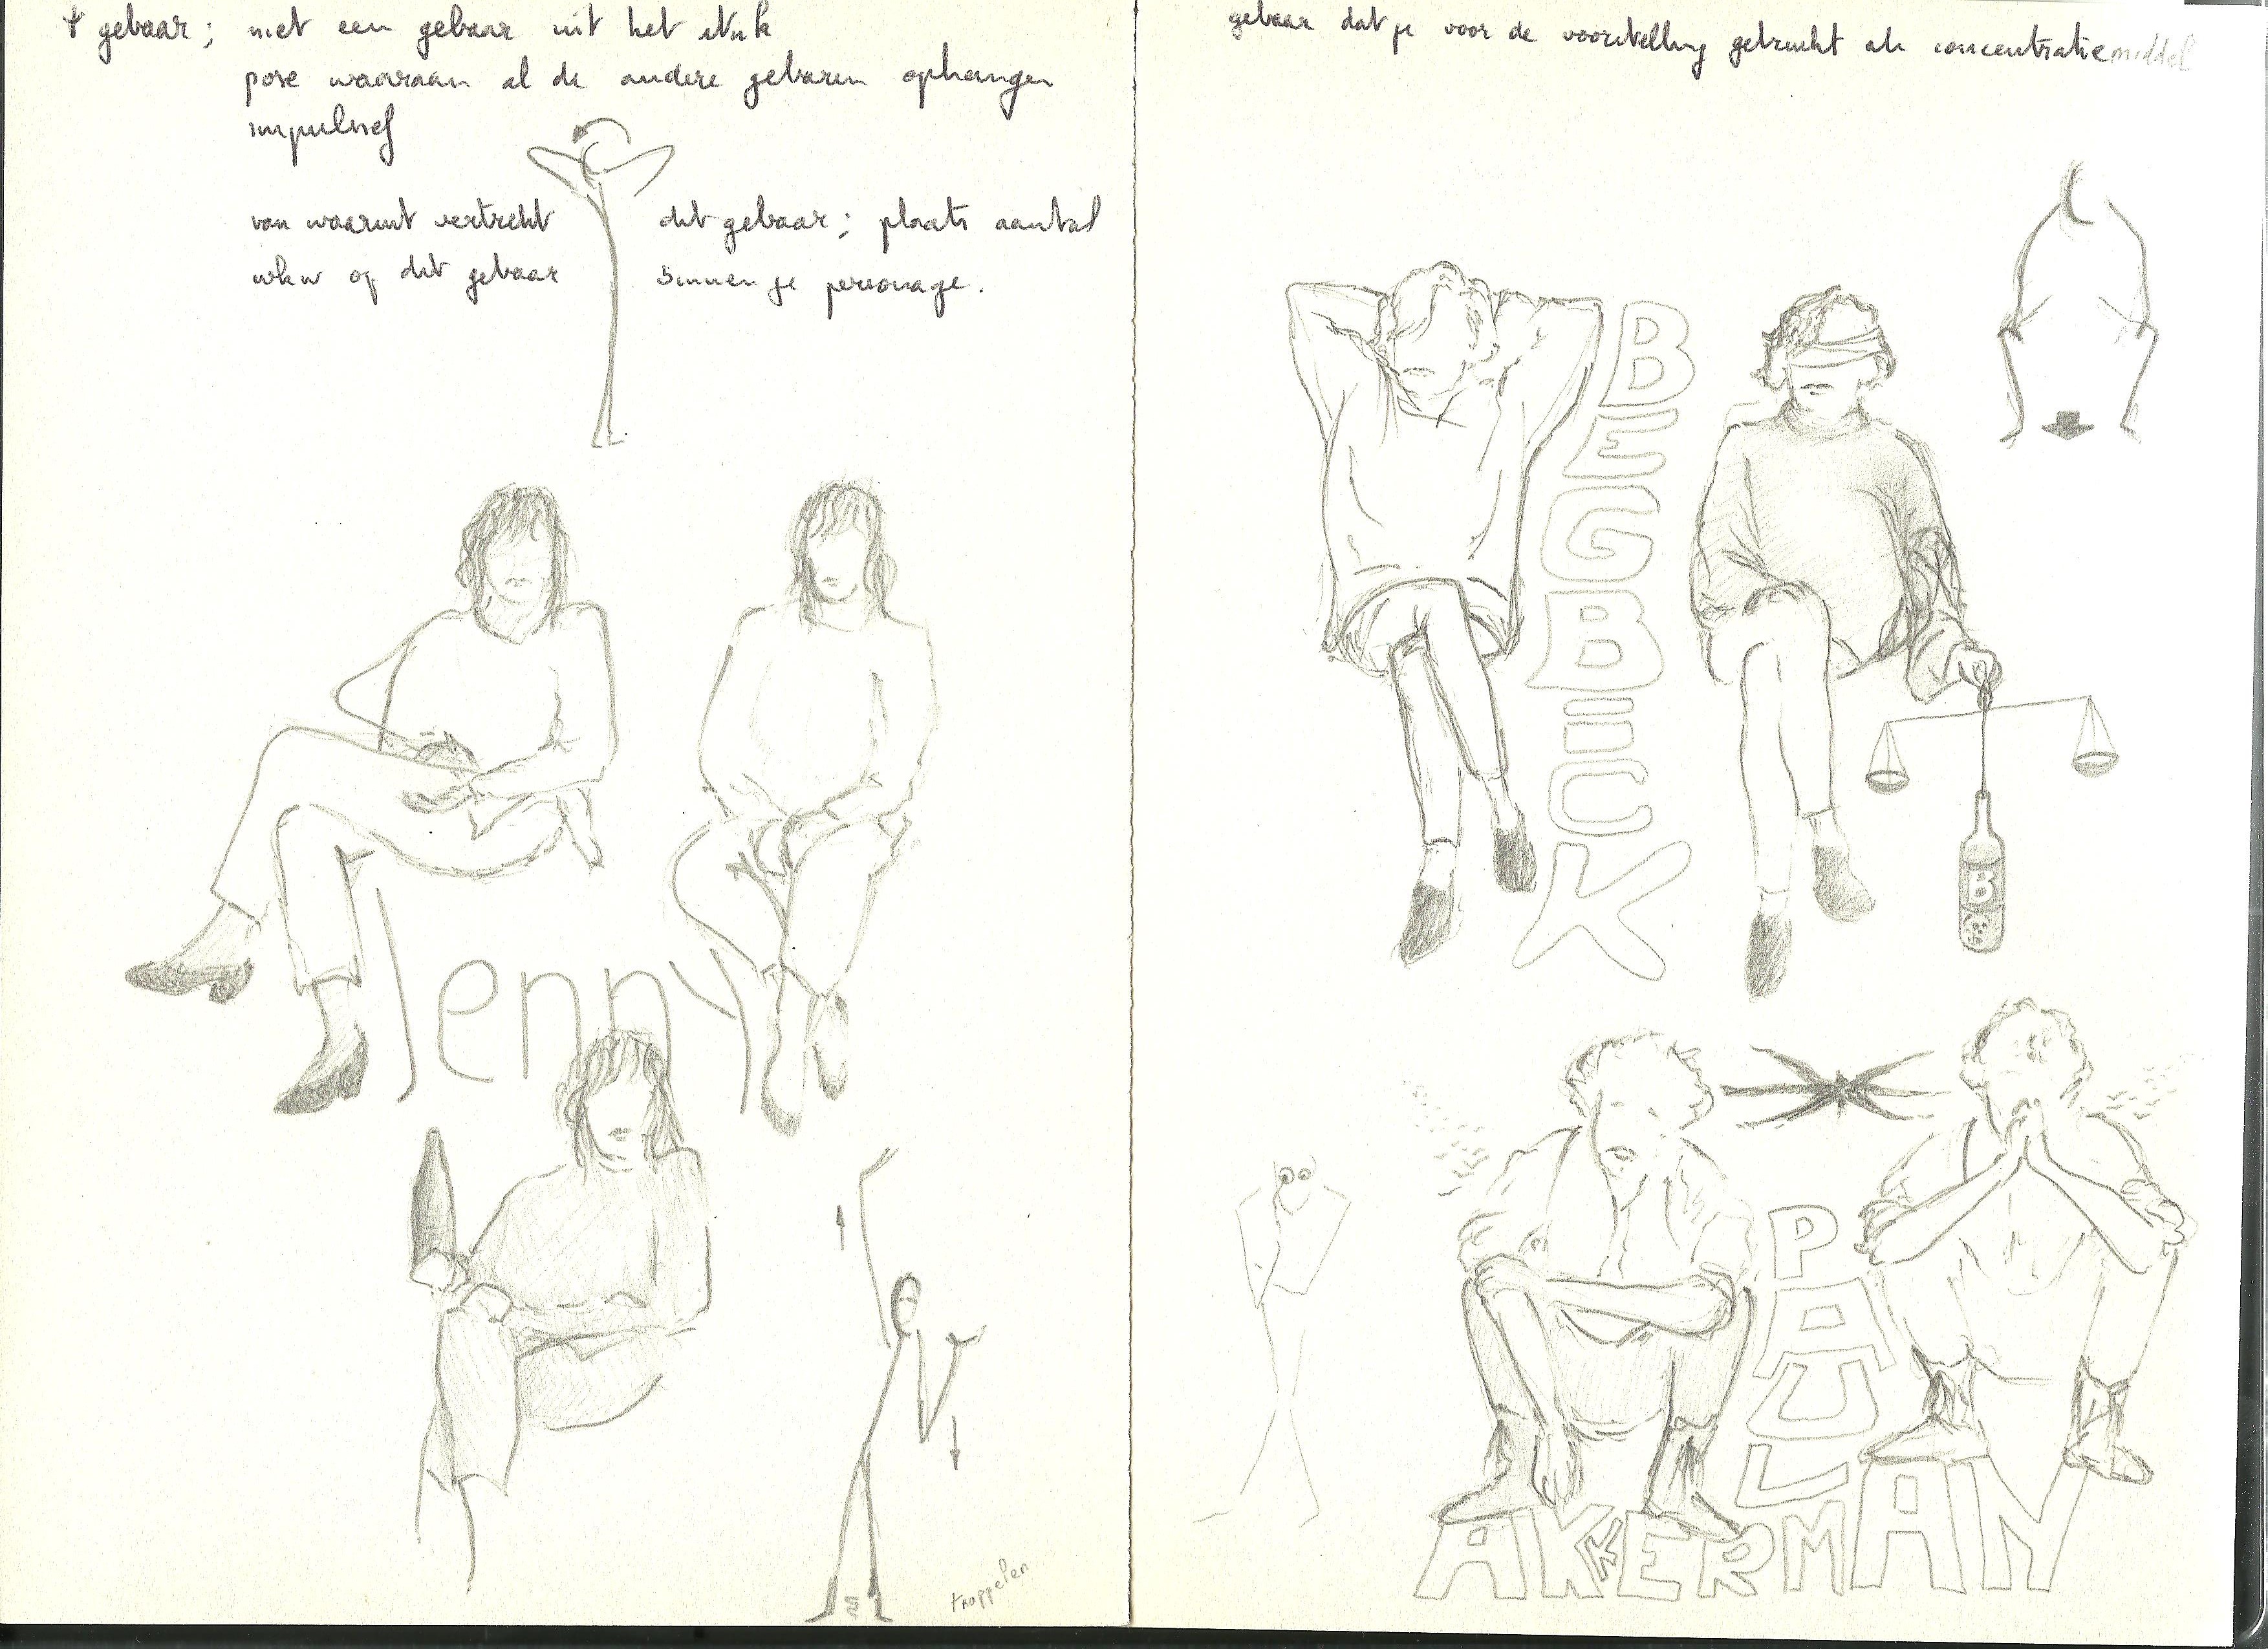 gebaar; niet een gebaar uit het stuk
pose waaraan al de andere gebaren ophangen
impulsief
van waaruit vertrekt dit gebaar; plaats aantal
op dit gebaar binnen je personage.
Jenny
trappelen
gebaar dat je voor de voorstelling gebruikt als concentratiemiddel
BEGBECK
B
PAUL
AKKERMAN